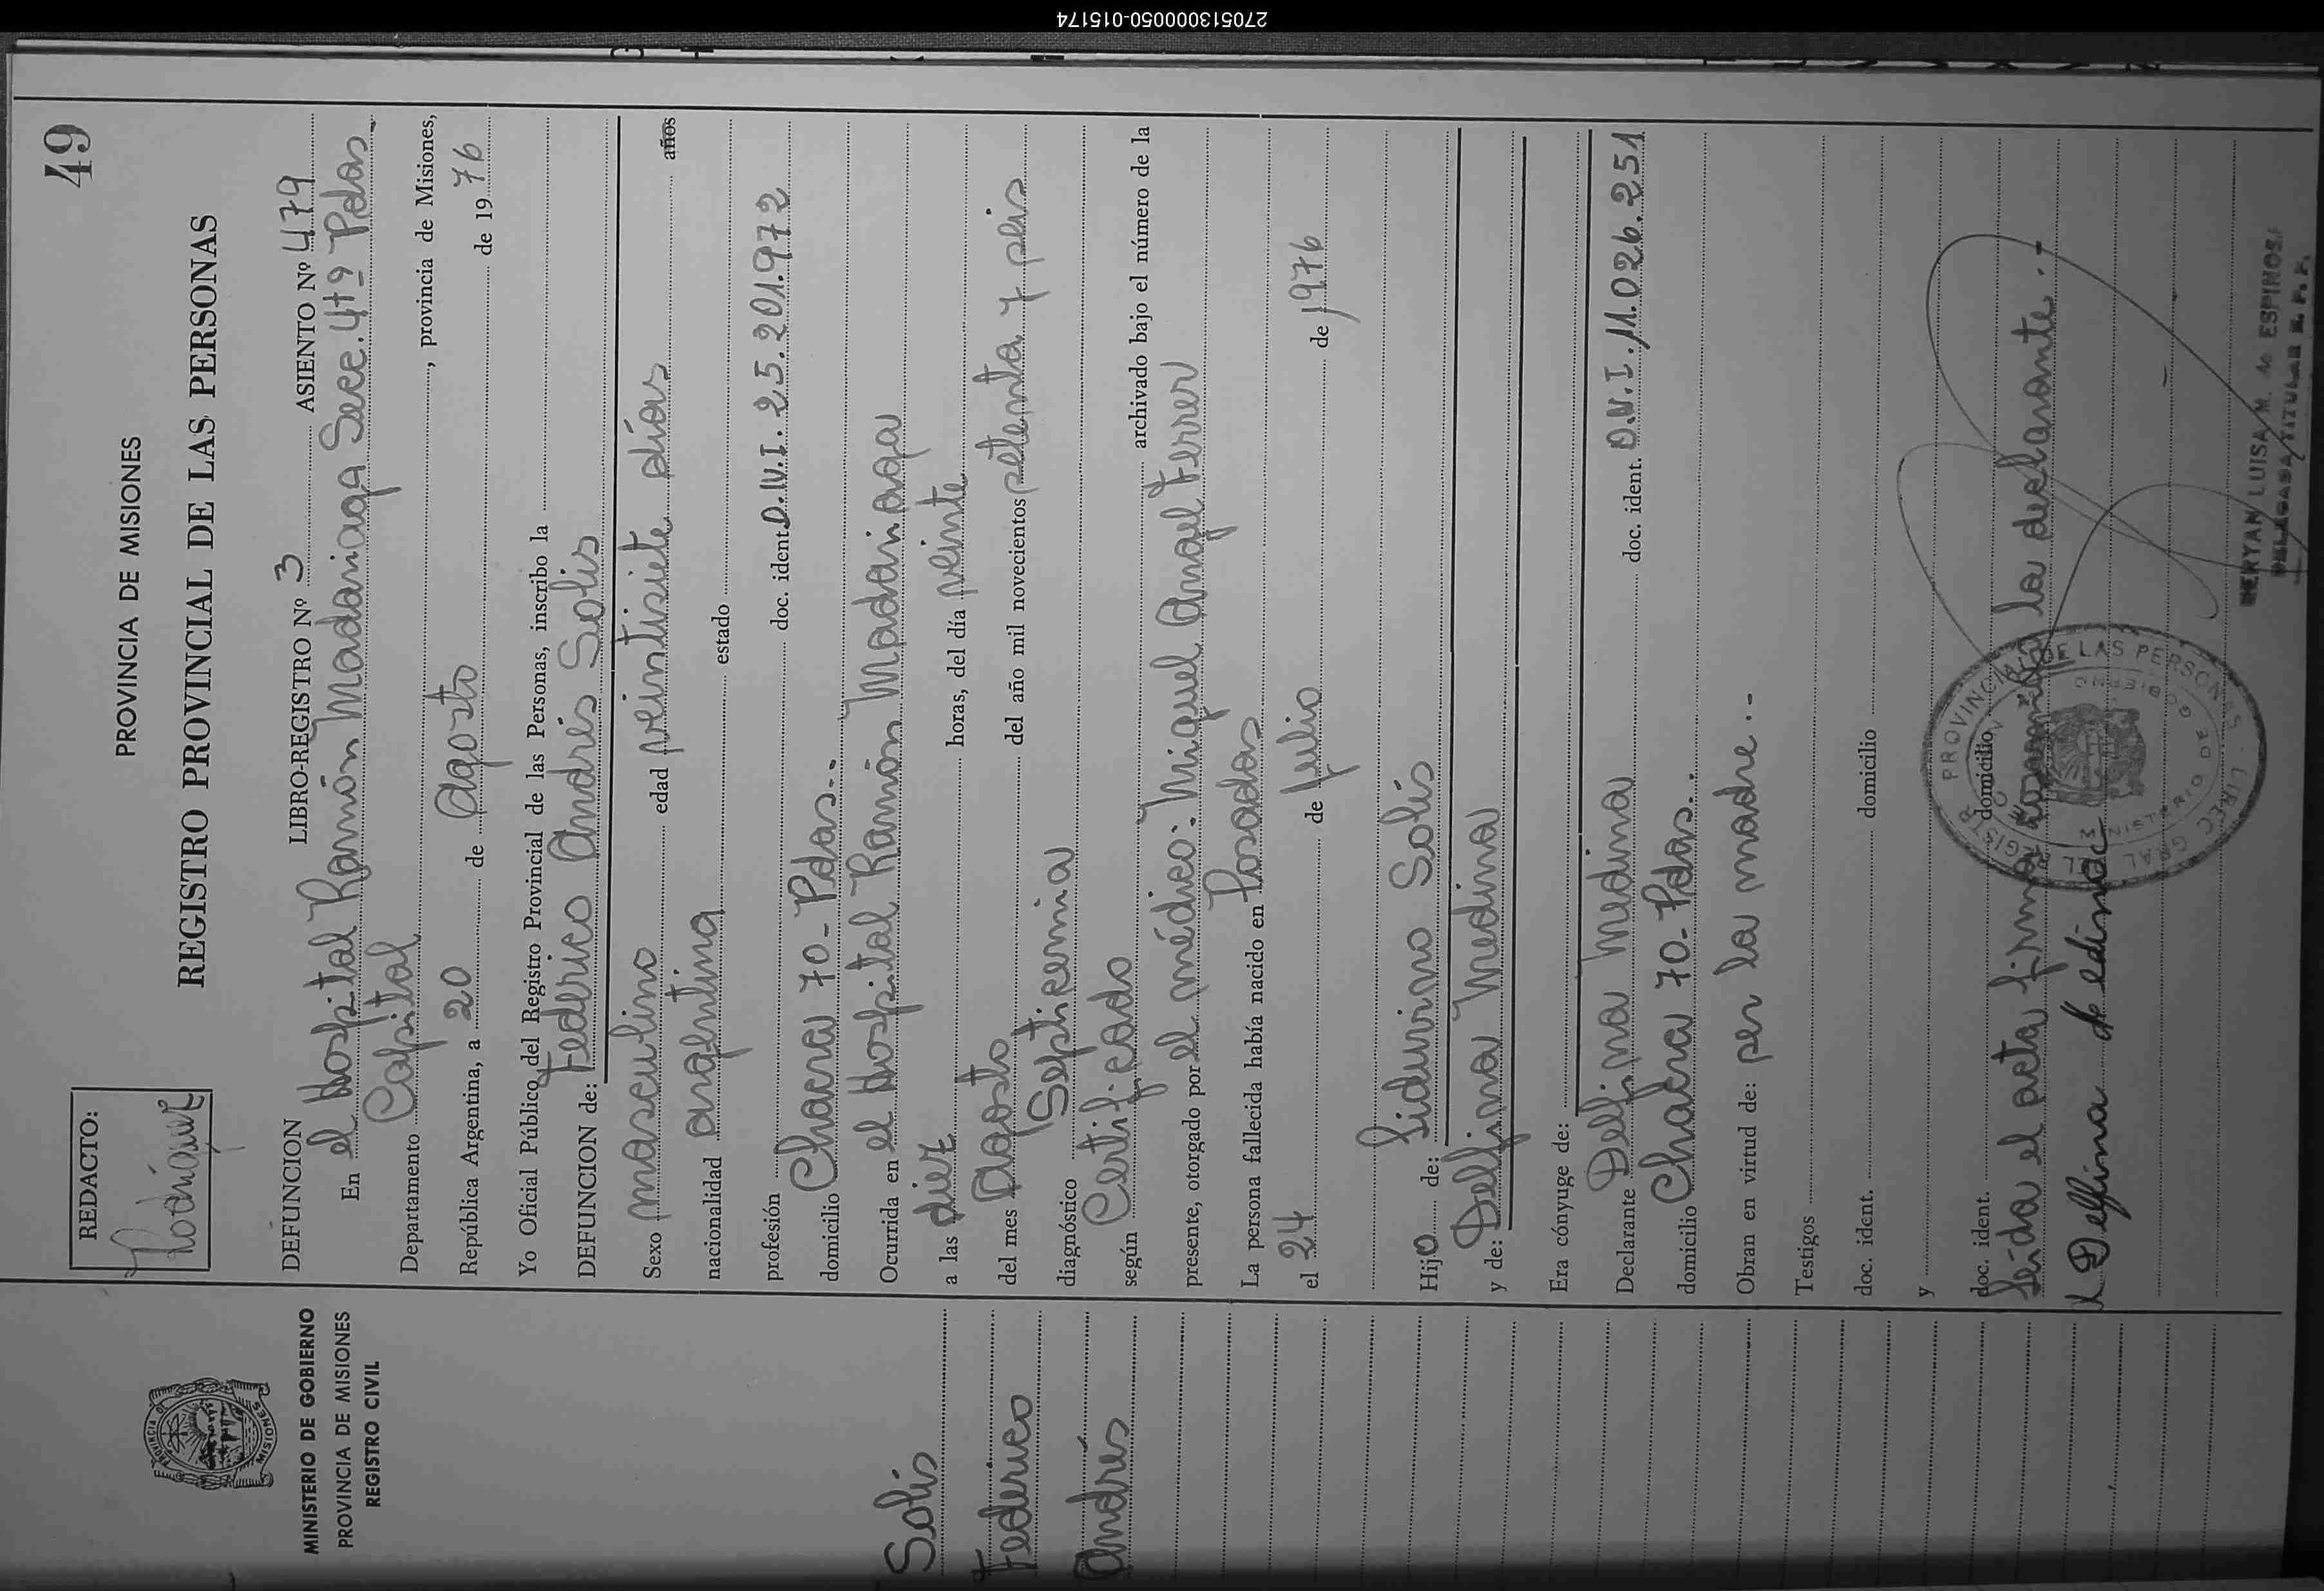 270513000050-015174
49
REDACTO:
Rodríguez
PROVINCIA DE MISIONES
REGISTRO PROVINCIAL DE LAS PERSONAS
MINISTERIO DE GOBIERNO
PROVINCIA DE MISIONES
REGISTRO CIVIL
Solis
Federico
Andrés
DEFUNCION LIBRO-REGISTRO Nº 3 ASIENTO Nº 479
En el Hospital Ramón Madariaga Secc. 4tº Pdas.
Departamento Capital, provincia de Misiones,
República Argentina, a 20 de Agosto de 1976
Yo Oficial Público del Registro Provincial de las Personas, inscribo la
DEFUNCION de: Federico Andrés Solis
Sexo masculino edad veintisiete días años
nacionalidad argentina estado
profesión doc. ident. D.N.I. 25.201.972
domicilio Chacra 70- Pdas..
Ocurrida en el Hospital Ramón Madariaga
a las diez horas, del día veinte
del mes Agosto del año mil novecientos setenta y seis
diagnóstico Septisemia
según Certificado archivado bajo el número de la
presente, otorgado por el médico: Miguel Angel Ferrer
La persona fallecida había nacido en Posadas
el 24 de Julio de 1976
Hijo de: Liduvino Solis
y de: Delfina Medina
Era cónyuge de:
Declarante Delfina Medina doc. ident. D.N.I. 11.026.251
domicilio Chacra 70- Pdas..
Obran en virtud de: ser la madre..
Testigos
doc. ident. domicilio
y
doc. ident. domicilio
Leída el acta firma la declarante..-
Delfina de edina
REGISTRO PROVINCIAL DE LAS PERSONAS
MERYAN LUISA M. de ESPINOSA
DELEGADA TITULAR R. P. P.